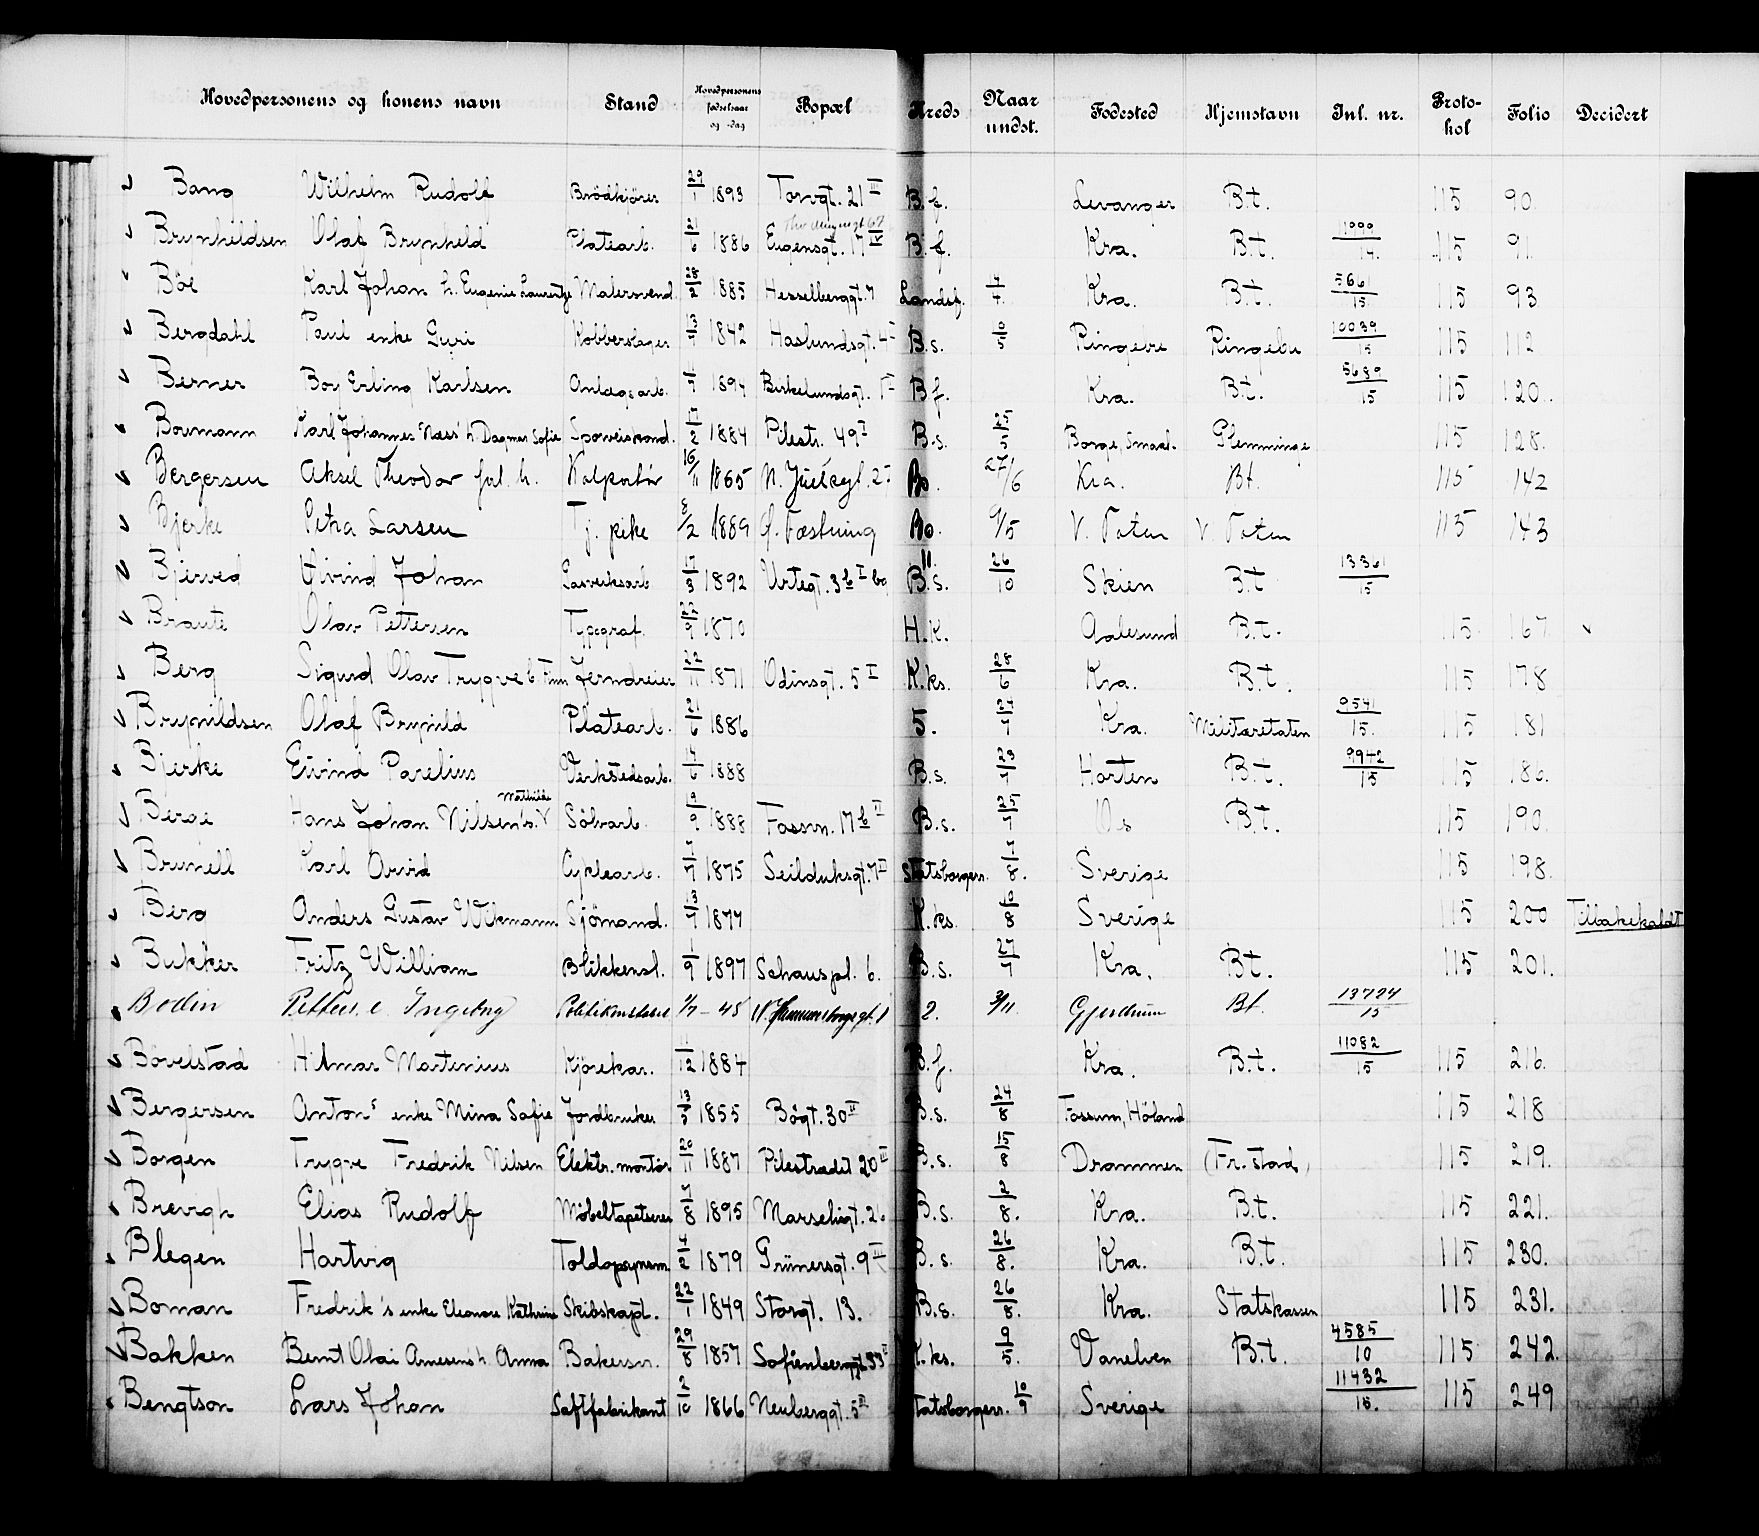 Hovedpersonens og konens navn Stand Hovedpersonens fødselsaar og -dag Bopæl Kreds Naar undst. Fødested Hjemstavn Inl. nr. Protokol Folio Decidert
Bang Wilhelm Rudolf Brödkjörer 29/1 1893 Torvgt. 21 III B.f. Levanger B.t. 115 90
Brynhildsen Olaf Brynhild Platearb. 21/6 1886 Eugensgt. 17 B.f. Kra. B.t. 115 91
Böe Karl Johan h. Eugenie Laurentze Malersvend 28/2 1885 Hesselberggt. 7 Landsf. Kra. B.t. 5661/15 115 93
Bergdahl Paul enke Guri Kobberslager 13/7 1842 Haslundsgt. 4 B.s. Ringebu 10039/15 115 112
Berner Boy Erling Karlsen Anlægsarb. 1894 Birkelundsgt. B.f. Kra. B.t. 5689/15 115 120.
Bowmann Karl Johannes "Næss" h. Dagmar Sofie 17/2 1884 Pilestr. 49 I B.s. Borge, Smaal. Glemminge 115 128.
Bergersen Aksel Theodor Kolportør 16/11 1865 N. Juelsgt. 2 Bo. 27/6 Kra. Bt. 115 142
Bjerke Petra Larsen Tj. pike 8/2 1889 Bo. 9/5 V. Toten V. Toten 115 143
Bjerved Eivind Johan Gasverksarb 17/3 1892 Urtegt. 3 b I B.s. 26/10 Skien B.t 13361/15
Braute Olav Pettersen Typograf. 22/9 1870 H.K. Aalesund B.t. 115 167
Berg Sigurd Olav Trygve Jerndreier 22/11 1871 Odinsgt. 5 I K.ks. 28/6 Kra. B.t. 115 178
Brynildsen Olaf Brynild Platearb. 21/6 1886 5. 27/7 Kra. Militæretaten 9541/15. 115 181
Bjerke Eivind Parelius Verkstedsarb. 17/6 1888 B.s. 23/7 Horten B.t. 9942/15 115 186.
Berge Hans Johan Nilsen Mathilde Sölvarb. 19/9 1888 Fossvn. 17 b II B.s. 25/7 Os B.t. 115 190.
Brunell Karl Arvid Cyklearb. 7/7 1875 Seilduksgt. 7 II Statsborgerr. 7/8. Sverige 115 198.
Berg Anders Gustav Wikmann Sjömand. 13/7 1877 K.ks. Sverige 115 200 Tilbakekaldt
Bukker Fritz William Blikkensl. 1/9 1897 Schauspl. 6. B.s. 27/7 Kra. B.t. 115 201.
Bodin Petter e. Ingeborg Politikonstabel 1/7 - 45 N. Hammersborggt. 1 2. 3/11 Gjerdrum Bt. 13724/15
Bövelstad Hilmar Martinius Kjörekar. 1/12 1884 B.f. Kra. B.t. 11082/15 115 216.
Bergersen Anton s enke Mina Sofie Jordbruker 13/5 1855 Bögt. 30 II B.s. 24/8 Fossum, Höland 115 218
Borgen Trygve Fredrik Nilsen Elektr. montör 20/11 1887 Pilestrædet 20 III B.s. 15/8 Drammen (Fr.stad) 115 219.
Brevigh Elias Rudolf Möbeltapetserer 7/8 1895 Marseligt. 2 B.s. 2/8. Kra. B.t. 115 221.
Blegen Hartvig Toldopsynsm. 4/2 1879 Grünersgt. 9 III B.s. 26/8. Kra. B.t. 115 230.
Boman Fredrik's enke Eleonore Kathrine Skibskapt. 22/1 1849 Storgt. 13. B.s. 26/8. Kra. Statskassen 115 231.
Bakken Bernt Olai Arnesens h. Anna Bakersv. 29/8 1857 Sofienberggt. 33 K.ks. 9/5. Vanelven B.t. 4585/10 115 242.
Bengtson Lars Johan Saftfabrikant 2/10 1866 Neuberggt. 5 II Statsborgerr. 10/9 Sverige 11432/15. 115 249